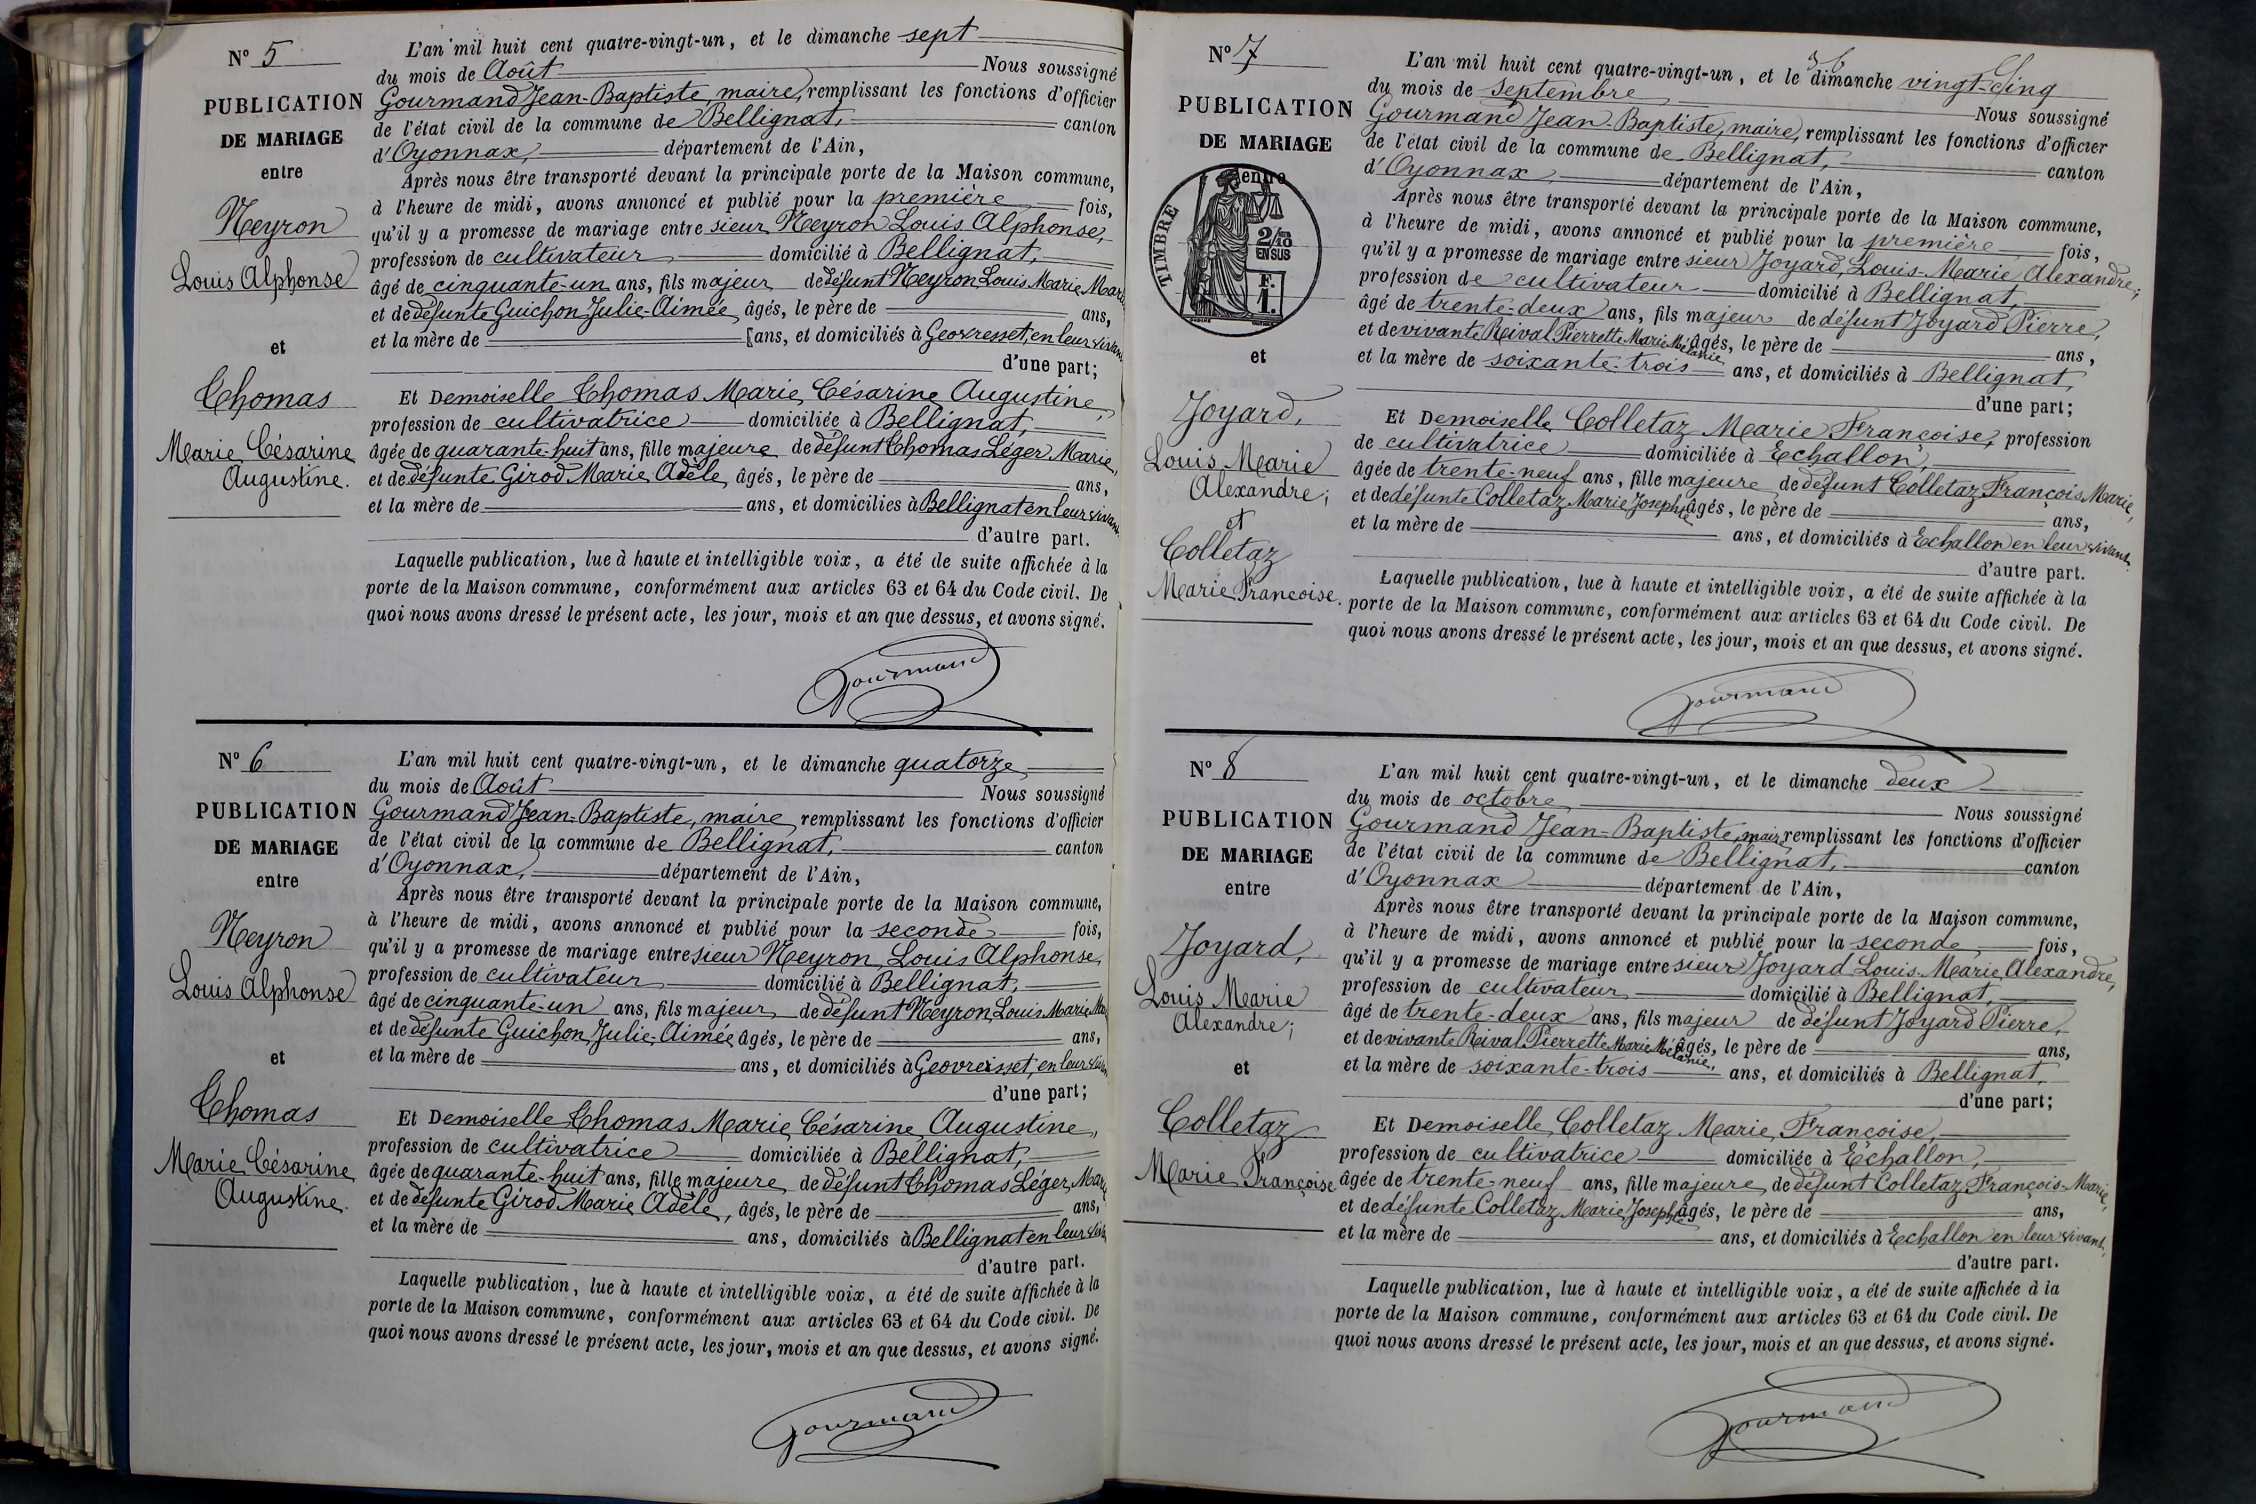 N° 5
PUBLICATION
DE MARIAGE
entre
Neyron
Louis Alphonse
et
Thomas
Marie Césarine
Augustine.
L'an mil huit cent quatre-vingt-un, et le dimanche sept
du mois de Août Nous soussigné
Gourmand Jean-Baptiste, maire, remplissant les fonctions d'officier
de l'état civil de la commune de Bellignat, canton
d'Oyonnax, département de l'Ain,
Après nous être transporté devant la principale porte de la Maison commune,
à l'heure de midi, avons annoncé et publié pour la première fois,
qu'il y a promesse de mariage entre sieur Neyron Louis Alphonse,
profession de cultivateur domicilié à Bellignat,
âgé de cinquante-un ans, fils majeur de défunt Neyron Louis Marie
et de défunte Guichon Julie-Aimée âgés, le père de ans,
et la mère de ans, et domiciliés à Geovresset, en leur vivant
d'une part;
Et Demoiselle Thomas Marie Césarine Augustine,
profession de cultivatrice domiciliée à Bellignat,
âgée de quarante-huit ans, fille majeure de défunt Thomas Léger Marie,
et de défunte Girod Marie Adèle, âgés, le père de ans,
et la mère de ans, et domiciliés à Bellignat en leur vivant
d'autre part.
Laquelle publication, lue à haute et intelligible voix, a été de suite affichée à la
porte de la Maison commune, conformément aux articles 63 et 64 du Code civil. De
quoi nous avons dressé le présent acte, les jour, mois et an que dessus, et avons signé.
Gourmand
N° 6
PUBLICATION
DE MARIAGE
entre
Neyron
Louis Alphonse
et
Thomas
Marie Césarine
Augustine.
L'an mil huit cent quatre-vingt-un, et le dimanche quatorze
du mois de Août Nous soussigné
Gourmand Jean-Baptiste, maire, remplissant les fonctions d'officier
de l'état civil de la commune de Bellignat, canton
d'Oyonnax, département de l'Ain,
Après nous être transporté devant la principale porte de la Maison commune,
à l'heure de midi, avons annoncé et publié pour la seconde fois,
qu'il y a promesse de mariage entre sieur Neyron Louis Alphonse,
profession de cultivateur domicilié à Bellignat,
âgé de cinquante-un ans, fils majeur de défunt Neyron Louis Marie
et de défunte Guichon Julie-Aimée âgés, le père de ans,
et la mère de ans, et domiciliés à Geovreisset, en leur
d'une part;
Et Demoiselle Thomas Marie Césarine Augustine,
profession de cultivatrice domiciliée à Bellignat,
âgée de quarante-huit ans, fille majeure de défunt Thomas Léger Marie
et de défunte Girod Marie Adèle, âgés, le père de ans,
et la mère de ans, domiciliés à Bellignat en leur
d'autre part.
Laquelle publication, lue à haute et intelligible voix, a été de suite affichée à la
porte de la Maison commune, conformément aux articles 63 et 64 du Code civil. De
quoi nous avons dressé le présent acte, les jour, mois et an que dessus, et avons signé.
Gourmand
N° 7
PUBLICATION
DE MARIAGE
entre
TIMBRE
2/10
EN SUS
F.
1.
et
Joyard,
Louis Marie
Alexandre;
et
Colletaz
Marie Françoise.
L'an mil huit cent quatre-vingt-un, et le dimanche vingt-cinq
du mois de septembre Nous soussigné
Gourmand Jean-Baptiste, maire, remplissant les fonctions d'officier
de l'état civil de la commune de Bellignat, canton
d'Oyonnax, département de l'Ain,
Après nous être transporté devant la principale porte de la Maison commune,
à l'heure de midi, avons annoncé et publié pour la première fois,
qu'il y a promesse de mariage entre sieur Joyard, Louis-Marie Alexandre;
profession de cultivateur domicilié à Bellignat,
âgé de trente-deux ans, fils majeur de défunt Joyard Pierre,
et de vivante Reival Pierrette Marie Mélanie âgés, le père de ans,
et la mère de soixante-trois ans, et domiciliés à Bellignat,
d'une part;
Et Demoiselle Colletaz Marie Françoise, profession
de cultivatrice domiciliée à Echallon,
âgée de trente-neuf ans, fille majeure de défunt Colletaz François Marie,
et de défunte Colletaz Marie Josephte âgés, le père de ans,
et la mère de ans, et domiciliés à Echallon en leur vivant.
d'autre part.
Laquelle publication, lue à haute et intelligible voix, a été de suite affichée à la
porte de la Maison commune, conformément aux articles 63 et 64 du Code civil. De
quoi nous avons dressé le présent acte, les jour, mois et an que dessus, et avons signé.
Gourmand
N° 8
PUBLICATION
DE MARIAGE
entre
Joyard,
Louis Marie
Alexandre;
et
Colletaz
Marie Françoise
L'an mil huit cent quatre-vingt-un, et le dimanche deux
du mois de octobre Nous soussigné
Gourmand Jean-Baptiste, maire, remplissant les fonctions d'officier
de l'état civil de la commune de Bellignat, canton
d'Oyonnax département de l'Ain,
Après nous être transporté devant la principale porte de la Maison commune,
à l'heure de midi, avons annoncé et publié pour la seconde fois,
qu'il y a promesse de mariage entre sieur Joyard Louis-Marie Alexandre,
profession de cultivateur domicilié à Bellignat,
âgé de trente-deux ans, fils majeur de défunt Joyard Pierre,
et de vivante Reival Pierrette Marie Mélanie, âgés, le père de ans,
et la mère de soixante-trois ans, et domiciliés à Bellignat,
d'une part;
Et Demoiselle Colletaz Marie Françoise,
profession de cultivatrice domiciliée à Echallon,
âgée de trente-neuf ans, fille majeure de défunt Colletaz François-Marie,
et de défunte Colletaz Marie Josephte âgés, le père de ans,
et la mère de ans, et domiciliés à Echallon en leur vivant,
d'autre part.
Laquelle publication, lue à haute et intelligible voix, a été de suite affichée à la
porte de la Maison commune, conformément aux articles 63 et 64 du Code civil. De
quoi nous avons dressé le présent acte, les jour, mois et an que dessus, et avons signé.
Gourmand